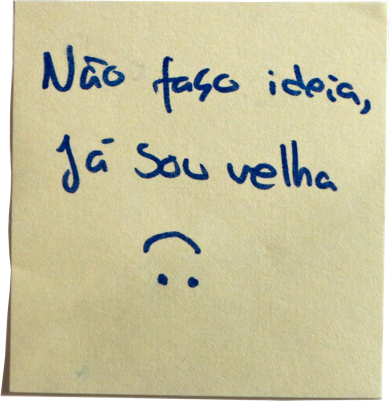 Não faço ideia,
Já sou velha